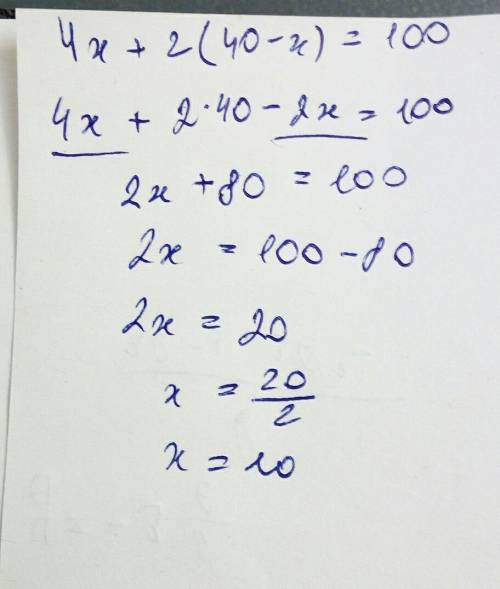 4x + 2(40-x) = 100
4x + 2·40 - 2x = 100
2x + 80 = 100
2x = 100 - 80
2x = 20
x = 20/2
x = 10